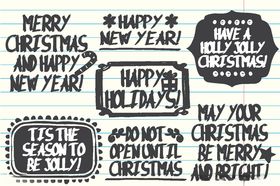 MERRY
CHRISTMAS
AND HAPPY
NEW YEAR!
HAPPY
NEW YEAR!
HAVE A
HOLLY JOLLY
CHRISTMAS!
HAPPY
HOLIDAYS!
'TIS THE
SEASON TO
BE JOLLY!
DO NOT
OPEN UNTIL
CHRISTMAS
MAY YOUR
CHRISTMAS
BE MERRY
AND BRIGHT!